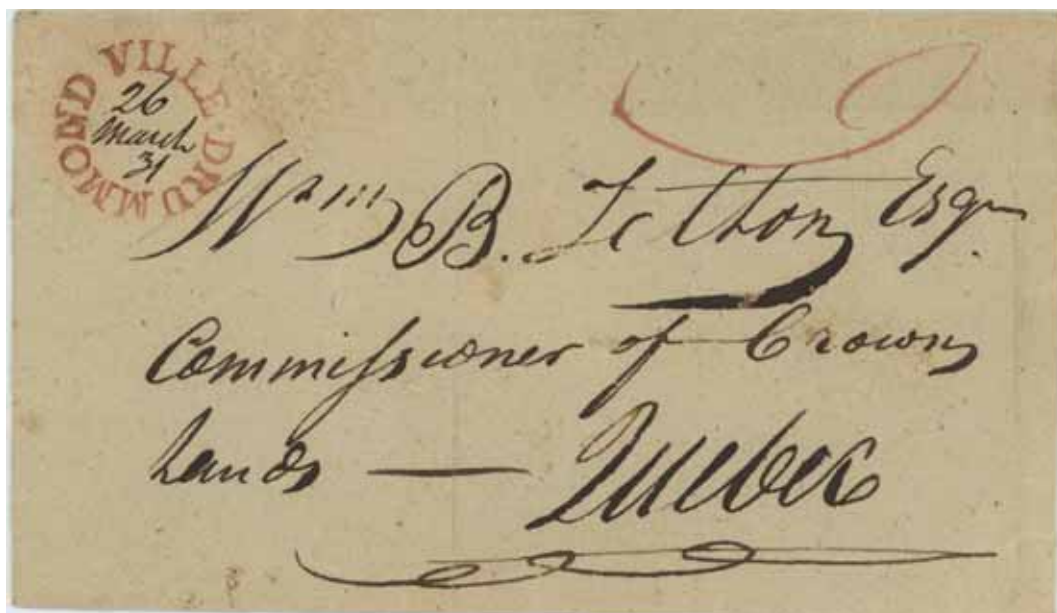 DRUMMONDVILLE
26
March
31
Wm B. Felton Esqr
Commissioner of Crown
Lands — Quebec